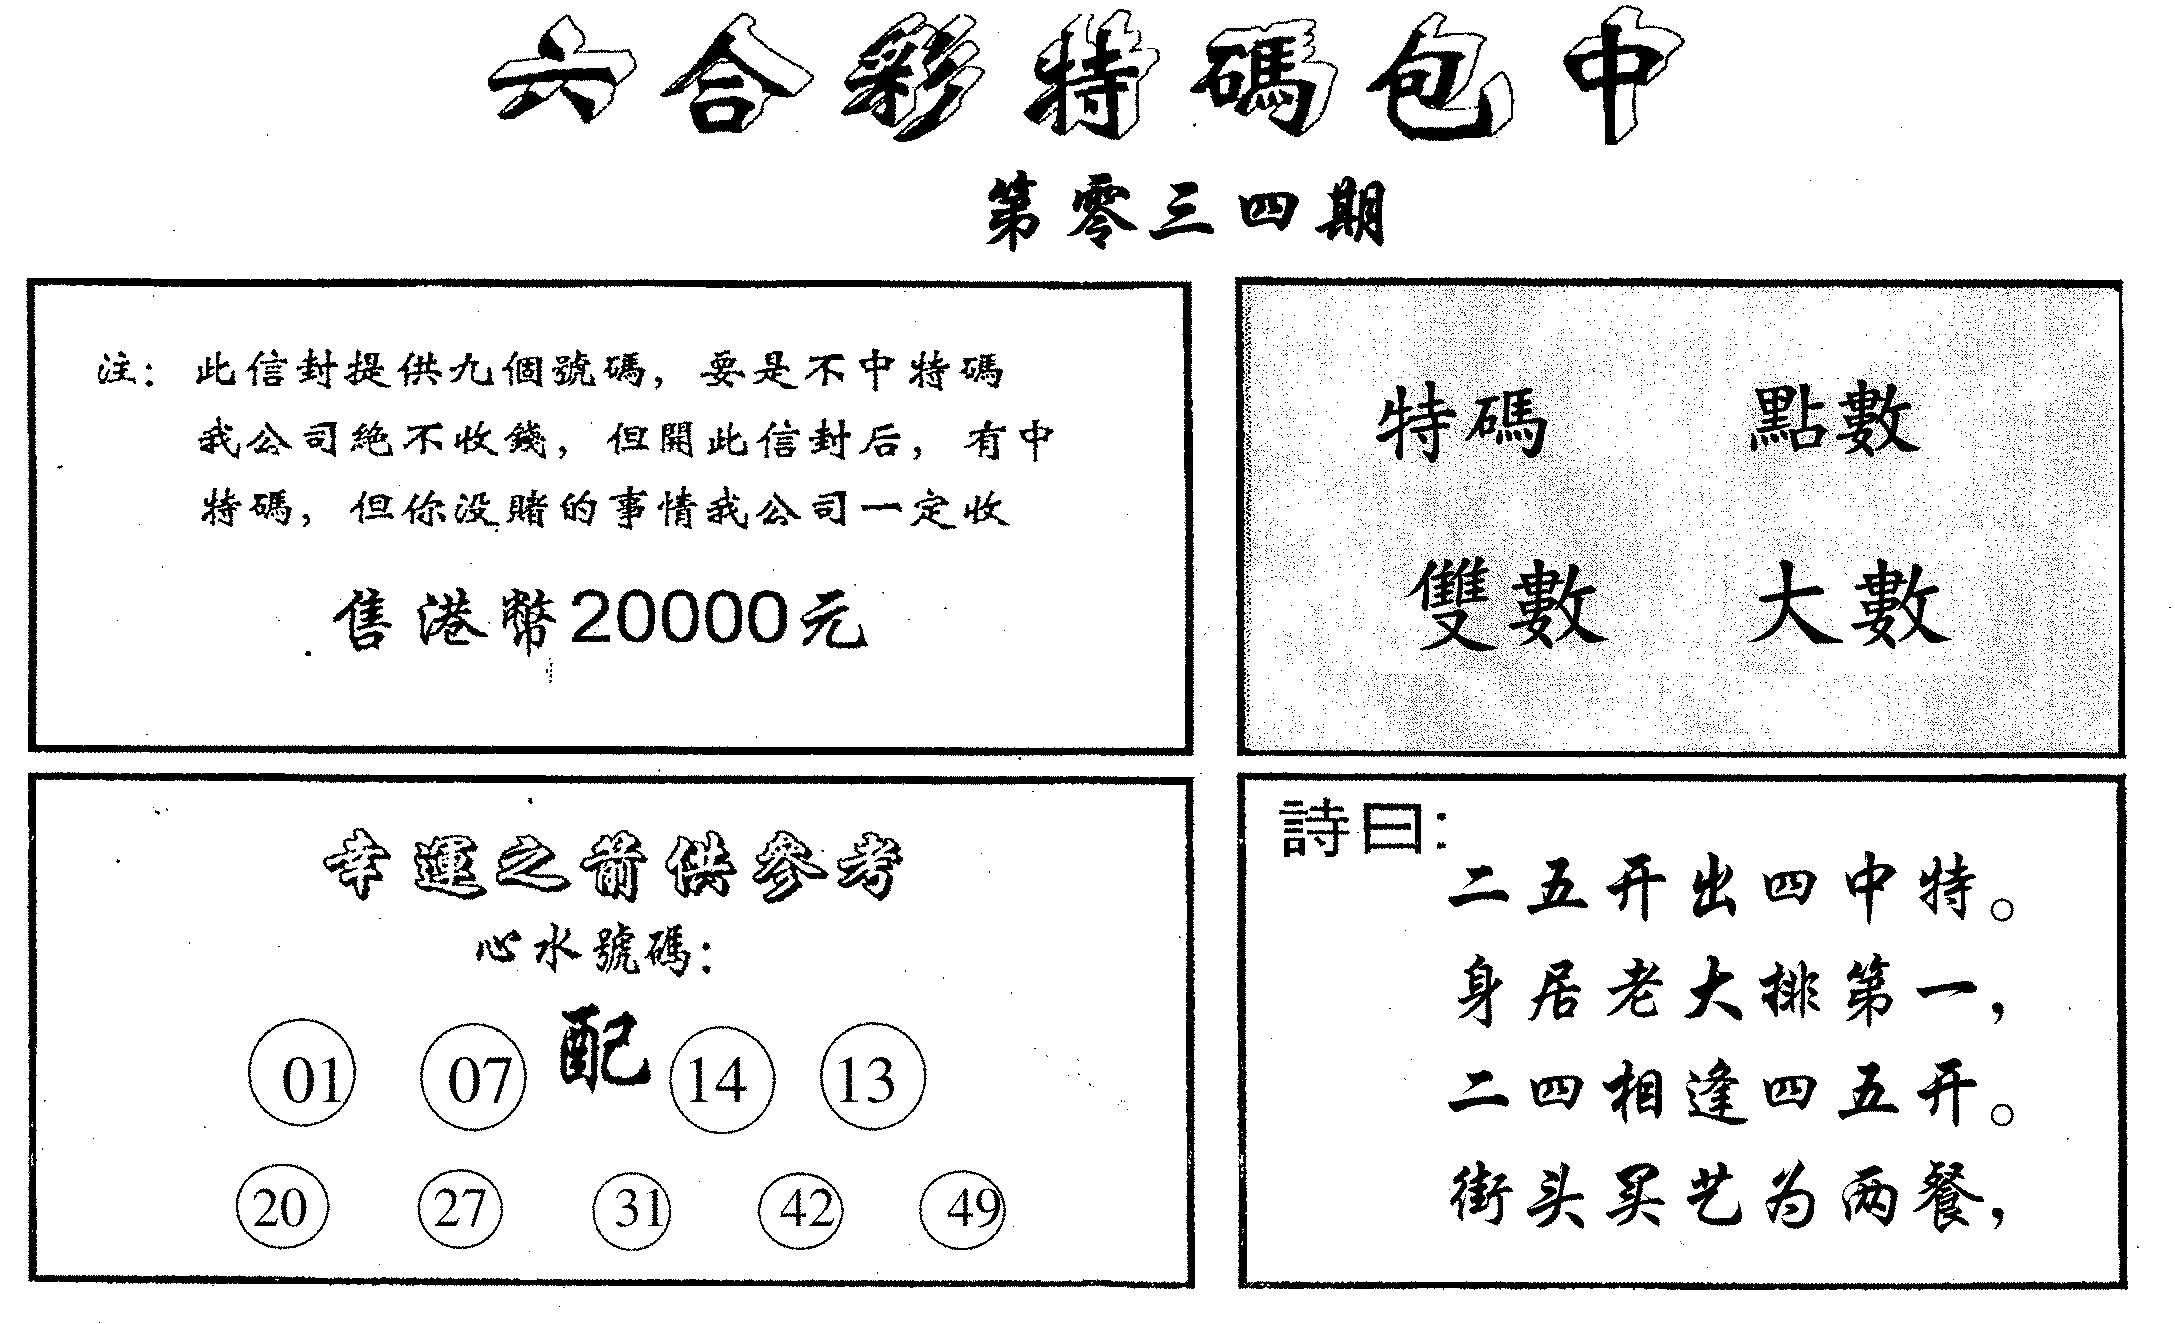 六合彩特碼包中
第零三四期
注：此信封提供九個號碼，要是不中特碼
我公司絶不收錢，但開此信封后，有中
特碼，但你没賭的事情我公司一定收
售港幣20000元
特碼 點數
雙數 大數
幸運之前供參考
心水號碼：
01 07 配 14 13
20 27 31 42 49
詩曰：
二五开出四中特。
身居老大排第一，
二四相逢四五开。
街头买艺为两餐，